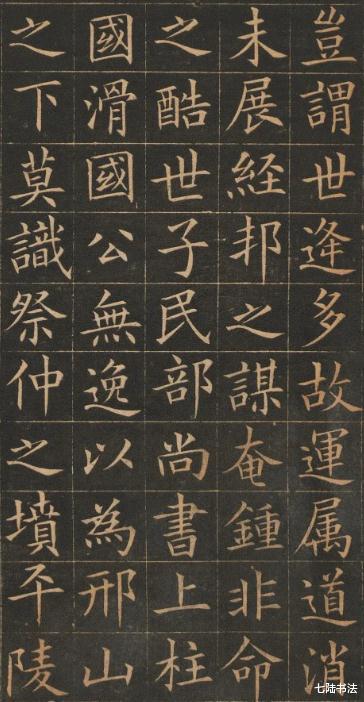 豈謂世逢多故運属道消
未展経邦之謀奄鍾非命
之酷世子民部尚書上柱
國滑國公無逸以為邢山
之下莫識祭仲之墳平陵
七陆书法